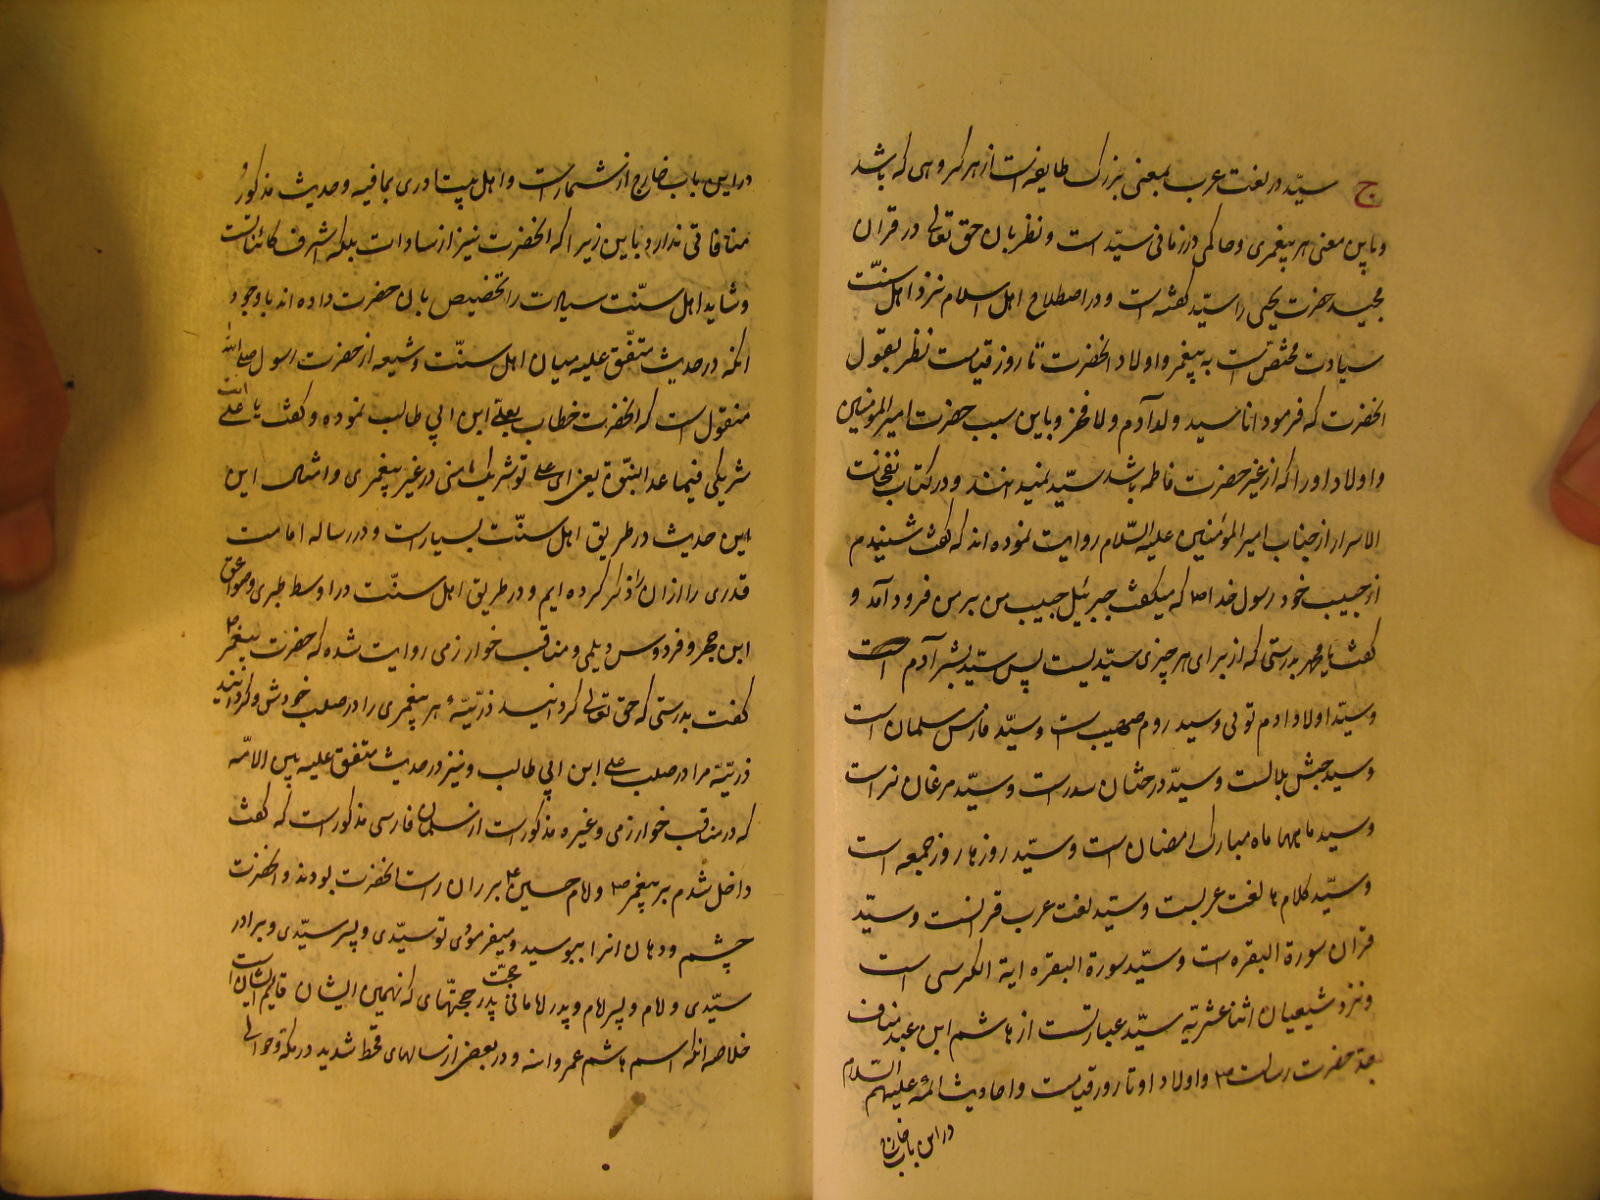 ج سیّد در لغت عرب بمعنی بزرک طایفه است از هر کروهی که باشد
و باین معنی هر پیغمبری و حاکمی در زمانی سیّد است و نظر بان حق تعالی در قران
مجید حضرت یحیی را سیّد کفته است و در اصطلاح اهل اسلام نزد اهل سنّت
سیادت مختص است به پیغمبر و اولاد انحضرت تا روز قیامت نظر بقول
انحضرت که فرمود انا سید ولد آدم و لا فخر و باین سبب حضرت امیر المومنین
و اولاد او را که از غیر حضرت فاطمه باشد سیّد نمیدانند و در کتاب نفحات
الاسرار از جناب امیر المؤمنین علیه السّلام روایت نموده اند که کفت شنیدم
از حبیب خود رسول خدا ص که میکفت جبرئیل حبیب من بر من فرود آمد و
کفت یا محمد بدرستی که از برای هر چیزی سیّدیست پس سیّد بشر آدم است
و سیّد اولاد ادم توئی و سید روم صهیب است و سیّد فارس سلمان است
و سید حبش بلالست و سیّد درختان سدر است و سیّد مرغان نسر است
و سید ماهها ماه مبارک رمضان است و سیّد روزها روز جمعه است
و سیّد کلام ها لغت عربیست و سیّد لغت عرب قرانست و سیّد
قران سورة البقره است و سیّد سورة البقره ایة الکرسی است
و نزد شیعیان اثنا عشریّه سیّد عبارتست از هاشم ابن عبد مناف
جدّ حضرت رسالت ص و اولاد او تا روز قیامت و احادیث ائمّه علیهم السّلام
در این باب خارج
در این باب خارج از شمار است و اهل بیت ادری بما فیه و حدیث مذکور
منافاتی ندارد باین زیرا که انحضرت نیز از سادات بلکه اشرف کائناتست
و شاید اهل سنّت سیادت را تخصیص بان حضرت داده اند باوجود
انکه در حدیث متّفق علیه میان اهل سنّت و شیعه از حضرت رسول صلی الله
منقول است که انحضرت خطاب بعلیّ ابن ابی طالب نموده و کفت یا علی انت
شریکی فیما عد النبّوة یعنی ای علی تو شریک منی در غیر پیغمبری و امثال این
این حدیث در طریق اهل سنّت بسیار است و در رساله امامت
قدری را از ان ذکر کرده ایم و در طریق اهل سنّت در اوسط طبری و صواعق
ابن حجر و فردوس دیلمی و مناقب خوارزمی روایت شده که حضرت پیغمبر ص
کفت بدرستی که حق تعالی کردانید ذرّیّهٔ هر پیغمبری را در صلب خودش و کردانید
ذرّیّة مرا در صلب علی ابن ابی طالب و نیز در حدیث متّفق علیه بین الامّه
که در مناقب خوارزمی و غیره مذکور است از سلمان فارسی مذکور است که کفت
داخل شدم بر پیغمبر ص و امام حسین ع بر ران راست انحضرت بودند و انحضرت
چشم و دهان انرا ببوسید و میفرمود توئی تو سیّدی و پسر سیّدی و برادر
سیّدی و امام و پسر امام و پدر امامانی حجّت پدر حجتّهای که نهمین ایشان قائم ایشان است
خلاصه انکه اسم هاشم عمرو است و در بعض از سالهای قحط شدید در مکه و حوالی